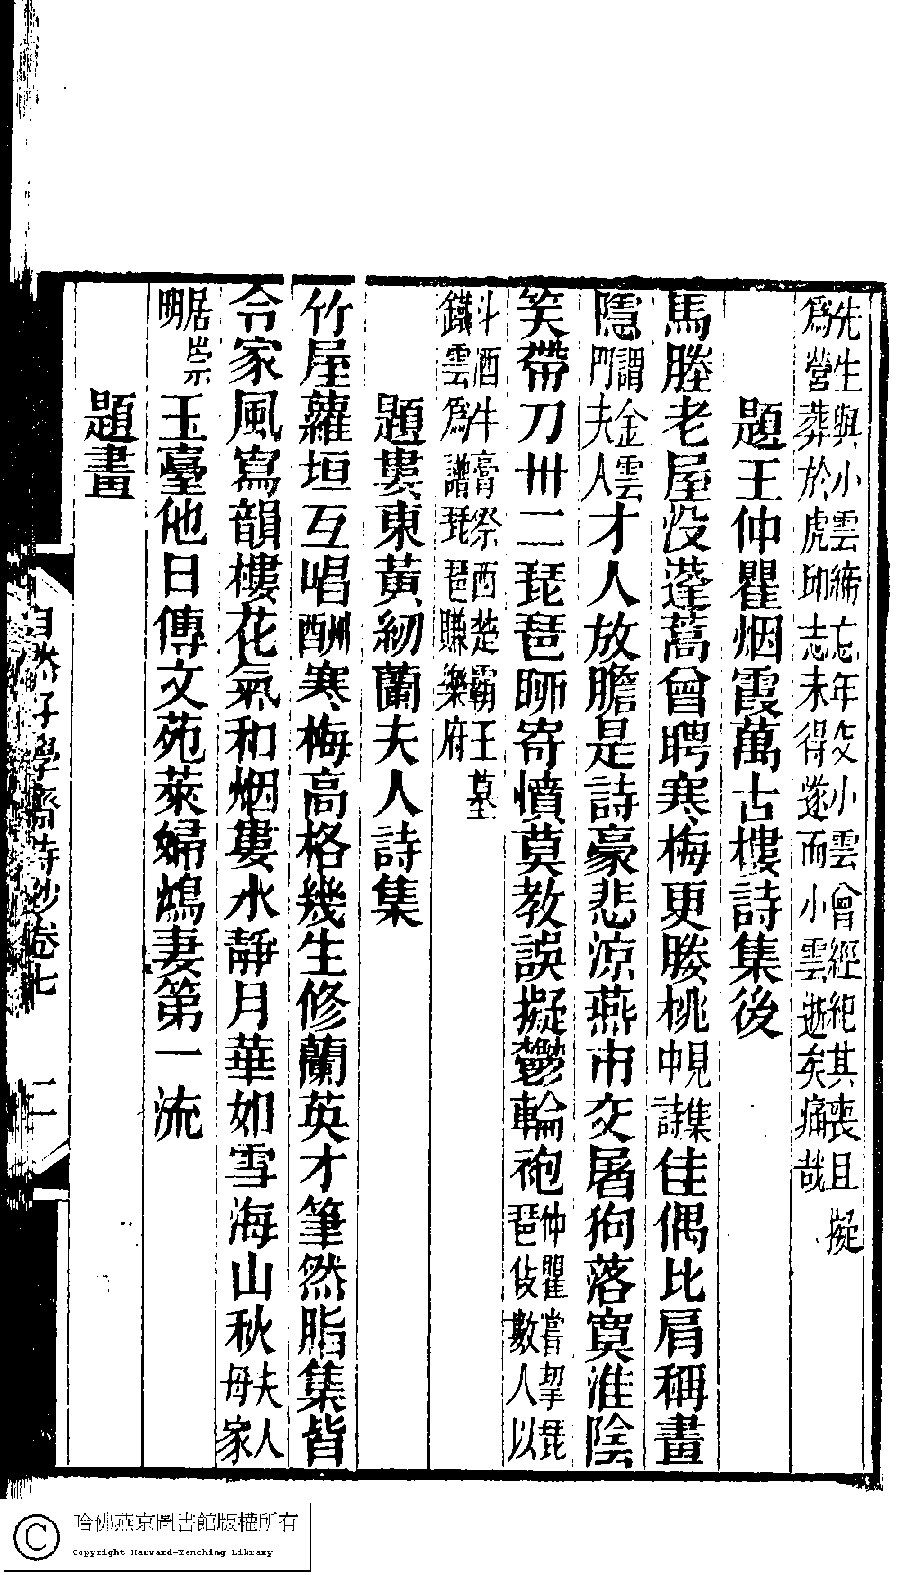 先生與小雲締忘年交小雲曾經紀其喪且擬
爲營葬於虎邱志未得遂而小雲逝矣痛哉
題王仲瞿烟霞萬古樓詩集後
馬塍老屋没蓬蒿曾聘寒梅更勝桃見集中詩佳偶比肩稱畫
隱謂金雲門夫人才人放膽是詩豪悲涼燕市交屠狗落寞淮陰
笑帶刀卅二琵琶聊寄憤莫教誤擬鬱輪袍仲瞿嘗挈琵琶伎數人以
斗酒牛膏祭西楚霸王墓
鐵雲爲譜琵琶賺樂府
題婁東黃紉蘭夫人詩集
竹屋蘿垣互唱酬寒梅高格幾生修蘭英才筆然脂集皆
令家風寫韻樓花氣和烟婁水靜月華如雪海山秋夫人母家
居崇明玉臺他日傳文苑萊婦鴻妻第一流
題畫
自然好學齋詩鈔卷七
二
哈佛燕京圖書館版權所有
Copyright Harvard-Yenching Library